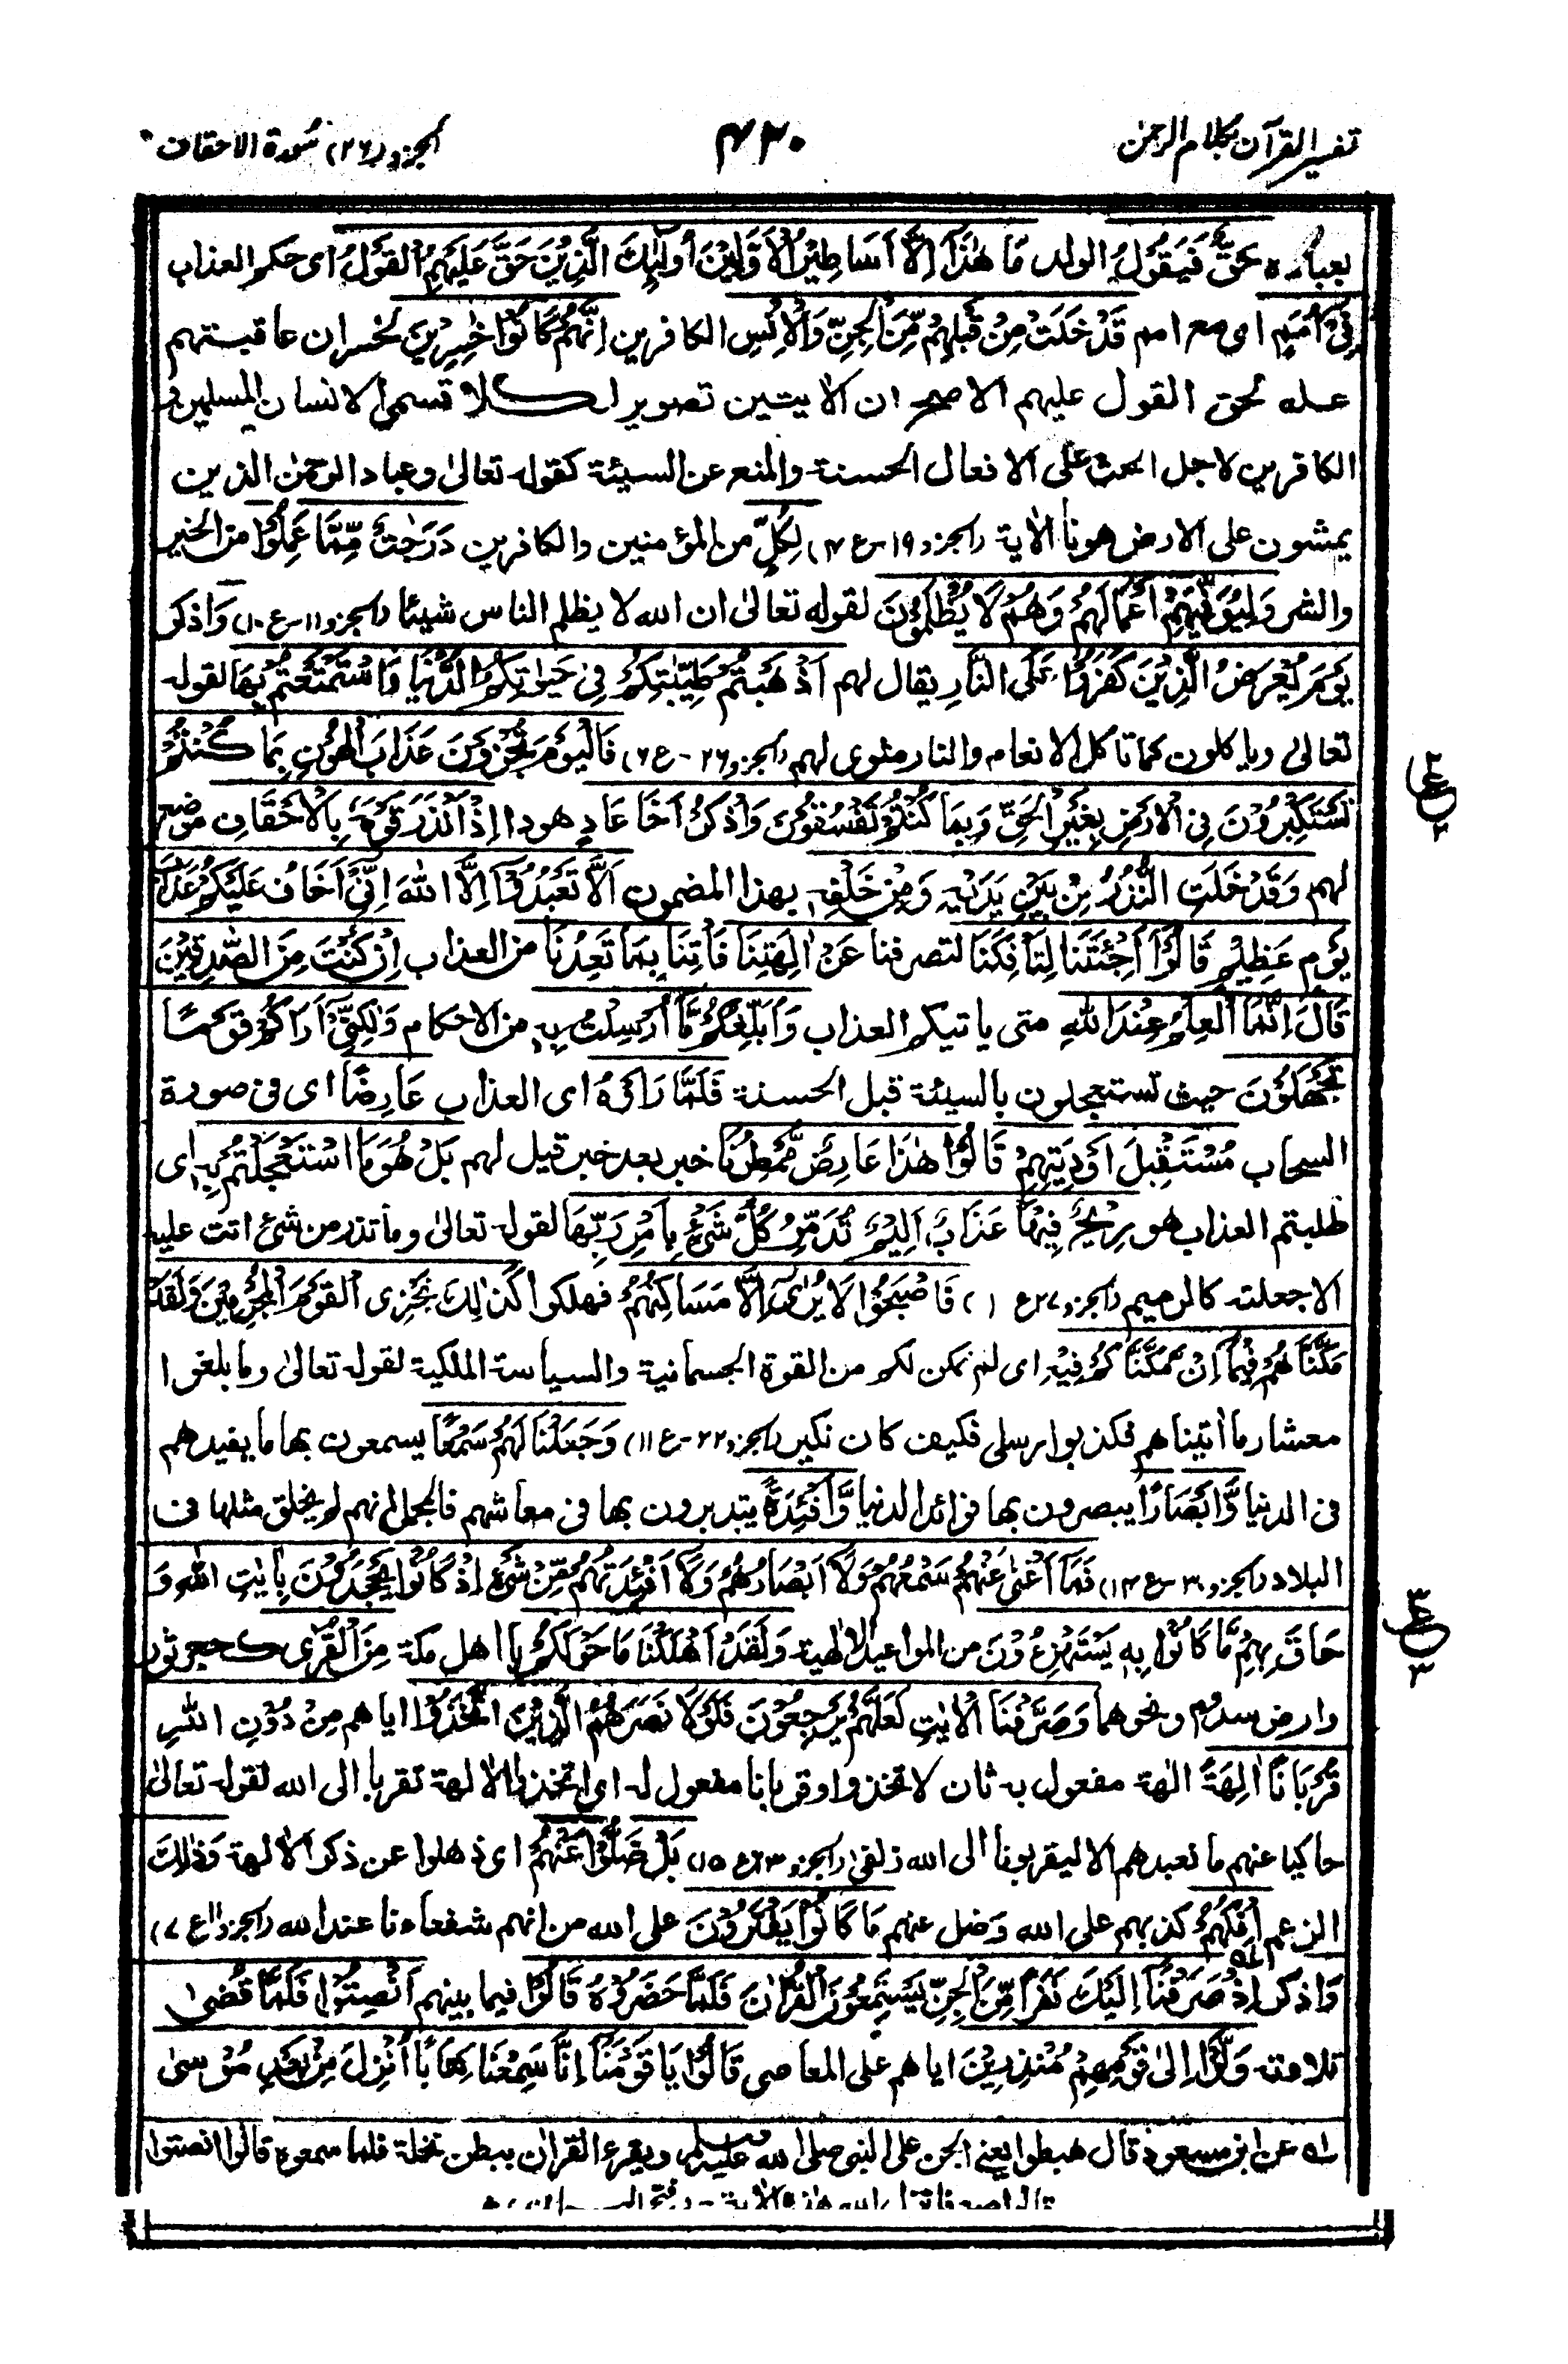 تفسیر القرآن بکلام الرحمن
۴۲۰
الجزو (۲۶) سُورة الاحقاف
بعباده حَقٌّ فَيَقُوۡلُ الولد مَا هٰذَاۤ اِلَّاۤ اَسَاطِيۡرُ الۡاَوَّلِيۡنَ اُولٰٓئِكَ الَّذِيۡنَ حَقَّ عَلَيۡهِمُ الۡقَوۡلُ ای حکم العذاب
فِیۡۤ اُمَمٍ ای مع امم قَدۡ خَلَتۡ مِنۡ قَبۡلِهِمۡ مِّنَ الۡجِنِّ وَالۡاِنۡسِ الکافرین اِنَّهُمۡ کَانُوۡا خٰسِرِیۡنَ لخسران عاقبتهم
عله لحق القول علیهم الاصح ان الایتین تصویر لکلا قسمی الانسان المسلمین و
الکافرین لاجل الحث علی الافعال الحسنة والمنع عن السیئة کقوله تعالیٰ وعباد الرحمٰن الذین
یمشون علی الارض هونا الاٰیة (الجزو ۱۹-ع ۴) لِکُلٍّ من المؤمنین والکافرین دَرَجٰتٌ مِّمَّا عَمِلُوۡا من الخیر
والشر وَلِیُوَفِّیَهُمۡ اَعۡمَالَهُمۡ وَهُمۡ لَا یُظۡلَمُوۡنَ لقوله تعالیٰ ان الله لا یظلم الناس شیئا (الجزو ۱۱-ع ۱۰) وَاذکر
یَوۡمَ یُعۡرَضُ الَّذِیۡنَ کَفَرُوۡا عَلَی النَّارِ یقال لهم اَذۡهَبۡتُمۡ طَیِّبٰتِکُمۡ فِیۡ حَیَاتِکُمُ الدُّنۡیَا وَاسۡتَمۡتَعۡتُمۡ بِهَا لقوله
تعالیٰ ویاکلون کما تاکل الانعام والنار مثوی لهم (الجزو ۲۶-ع ۶) فَالۡیَوۡمَ تُجۡزَوۡنَ عَذَابَ الۡهُوۡنِ بِمَا کُنۡتُمۡ
تَسۡتَکۡبِرُوۡنَ فِی الۡاَرۡضِ بِغَیۡرِ الۡحَقِّ وَبِمَا کُنۡتُمۡ تَفۡسُقُوۡنَ وَاذۡکُرۡ اَخَا عَادٍ هودا اِذۡ اَنۡذَرَ قَوۡمَهٗ بِالۡاَحۡقَافِ موضع
لهم وَقَدۡ خَلَتِ النُّذُرُ مِنۡ بَیۡنِ یَدَیۡهِ وَمِنۡ خَلۡفِهٖ بهذا المضمون اَلَّا تَعۡبُدُوۡۤا اِلَّا اللهَ اِنِّیۡۤ اَخَافُ عَلَیۡکُمۡ عَذَابَ
یَوۡمٍ عَظِیۡمٍ قَالُوۡۤا اَجِئۡتَنَا لِتَاۡفِکَنَا لتصرفنا عَنۡ اٰلِهَتِنَا فَاۡتِنَا بِمَا تَعِدُنَا من العذاب اِنۡ کُنۡتَ مِنَ الصّٰدِقِیۡنَ
قَالَ اِنَّمَا الۡعِلۡمُ عِنۡدَ اللهِ متی یاتیکم العذاب وَاُبَلِّغُکُمۡ مَّاۤ اُرۡسِلۡتُ بِهٖ من الاحکام وَلٰکِنِّیۡۤ اَرَاکُمۡ قَوۡمًا
تَجۡهَلُوۡنَ حیث تستعجلون بالسیئة قبل الحسنة فَلَمَّا رَاَوۡهُ ای العذاب عَارِضًا ای فی صورة
السحاب مُسۡتَقۡبِلَ اَوۡدِیَتِهِمۡ قَالُوۡا هٰذَا عَارِضٌ مُّمۡطِرُنَا خبر بعد خبر قیل لهم بَلۡ هُوَ مَا اسۡتَعۡجَلۡتُمۡ بِهٖ ای
طلبتم العذاب هو رِیۡحٌ فِیۡهَا عَذَابٌ اَلِیۡمٌ تُدَمِّرُ کُلَّ شَیۡءٍ بِاَمۡرِ رَبِّهَا لقوله تعالیٰ وما تذر من شئ اتت علیه
الا جعلته کالرمیم (الجزو ۲۷ ع ۱) فَاَصۡبَحُوۡا لَا یُرٰۤی اِلَّا مَسَاکِنُهُمۡ فهلکوا کَذٰلِكَ نَجۡزِی الۡقَوۡمَ الۡمُجۡرِمِیۡنَ وَلَقَدۡ
مَکَّنَّا هُمۡ فِیۡمَاۤ اِنۡ مَّکَّنَّا کُمۡ فِیۡهِ ای لم نمکن لکم من القوة الجسمانیة والسیاسة الملکیة لقوله تعالیٰ وما بلغوا
معشار ما اٰتیناهم فکذبوا رسلی فکیف کان نکیر (الجزو ۲۲-ع ۱۱) وَجَعَلۡنَا لَهُمۡ سَمۡعًا یسمعون بها ما یفیدهم
فی الدنیا وَّاَبۡصَارًا یبصرون بها فوائد الدنیا وَّاَفۡئِدَةً یتدبرون بها فی معاشهم فالجمل انهم لم یخلق مثلها فی
البلاد (الجزو ۳۰-ع ۱۴) فَمَاۤ اَغۡنٰی عَنۡهُمۡ سَمۡعُهُمۡ وَلَاۤ اَبۡصَارُهُمۡ وَلَاۤ اَفۡئِدَتُهُمۡ مِّنۡ شَیۡءٍ اِذۡ کَانُوۡا یَجۡحَدُوۡنَ بِاٰیٰتِ اللهِ وَ
حَاقَ بِهِمۡ مَّا کَانُوۡا بِهٖ یَسۡتَهۡزِءُوۡنَ من المواعید الالٰهیة وَلَقَدۡ اَهۡلَکۡنَا مَا حَوۡلَکُمۡ یا اهل مکة مِنَ الۡقُرٰی کحجر ثمود
وارض سدوم ونحوهما وَصَرَّفۡنَا الۡاٰیٰتِ لَعَلَّهُمۡ یَرۡجِعُوۡنَ فَلَوۡلَا نَصَرَهُمُ الَّذِیۡنَ اتَّخَذُوۡا ایاهم مِنۡ دُوۡنِ اللهِ
قُرۡبَانًا اٰلِهَةً الهة مفعول به ثان لاتخذوا وقربانا مفعول له ای اتخذوا الالهة تقربا الی الله لقوله تعالیٰ
حاکیا عنهم ما نعبدهم الا لیقربونا الی الله زلفی (الجزو ۲۳ ع ۱۵) بَلۡ ضَلُّوۡا عَنۡهُمۡ ای ذهلوا عن ذکر الالهة وَذٰلِكَ
الزعم اِفۡکُهُمۡ کذبهم علی الله وضل عنهم مَا کَانُوۡا یَفۡتَرُوۡنَ علی الله من انهم شفعاءنا عند الله (الجزو ۱۱ ع ۷)
وَاذکر اِذۡ صَرَفۡنَاۤ اِلَیۡكَ نَفَرًا مِّنَ الۡجِنِّ یَسۡتَمِعُوۡنَ الۡقُرۡاٰنَ فَلَمَّا حَضَرُوۡهُ قَالُوۡا فیما بینهم اَنۡصِتُوۡا فَلَمَّا قُضِیَ
تلاوته وَلَّوۡا اِلٰی قَوۡمِهِمۡ مُنۡذِرِیۡنَ ایاهم علی المعاصی قَالُوۡا یَا قَوۡمَنَاۤ اِنَّا سَمِعۡنَا کِتَابًا اُنۡزِلَ مِنۡ بَعۡدِ مُوۡسیٰ
له عن ابن مسعود قال هبطوا یعنی الجن علی النبی صلی الله علیه وسلم ویقرء القراٰن ببطن نخلة فلما سمعوه قالوا انصتوا
ع ۲
ع ۳